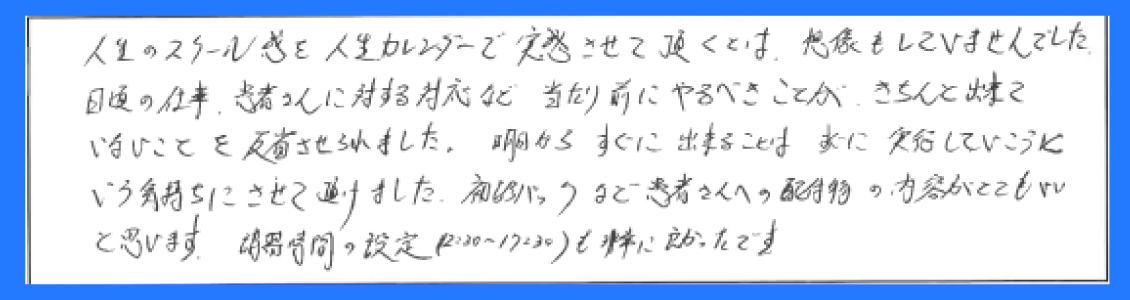 人生のスケール感を人生カレンダーで実感させて頂くとは、想像もしていませんでした。
日頃の仕事、患者さんに対する対応など当たり前にやるべきことが、きちんと出来て
いないことを反省させられました。明日からすぐに出来ることはすぐに実行していこうと
いう気持ちにさせて頂けました。初診パックなど患者さんへの配付物の内容がとてもいい
と思います。講習時間の設定(12:30〜17:30)も非常に良かったです